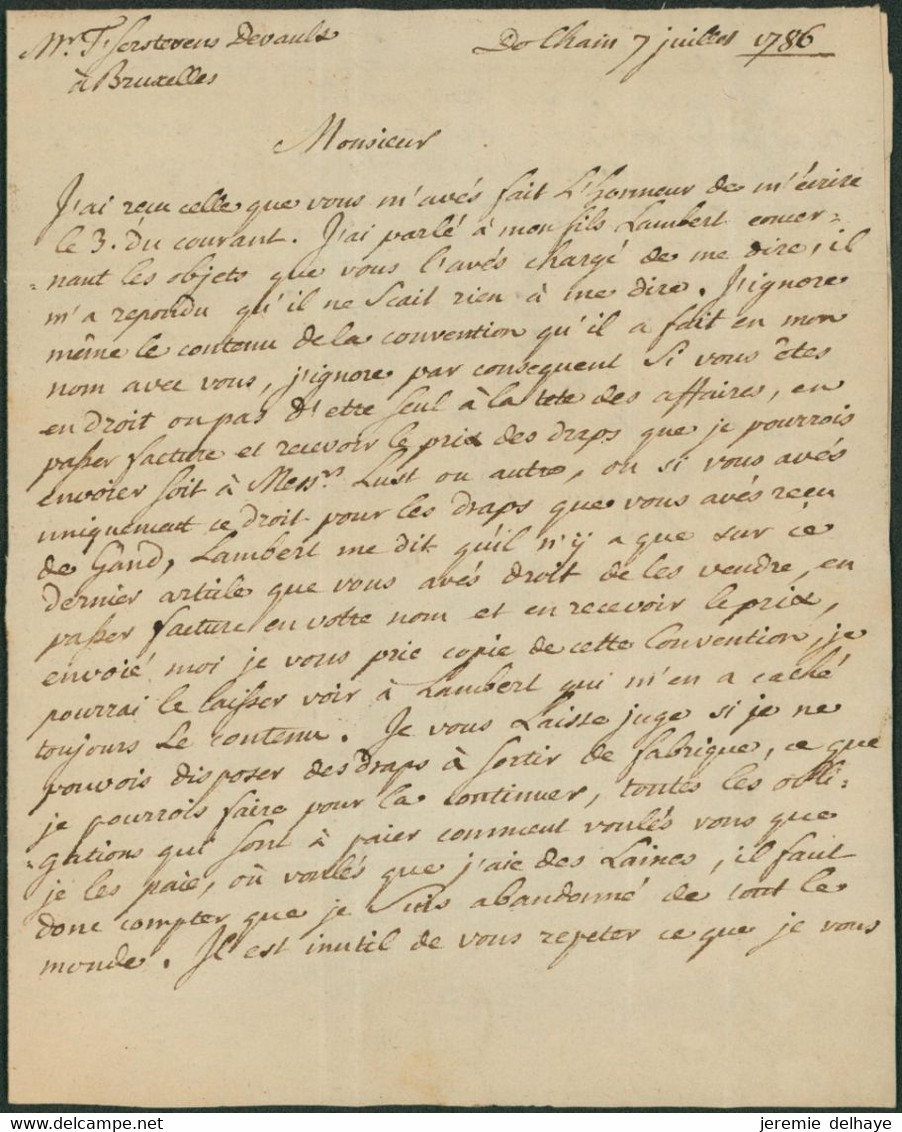 Mr. T'Serstevens Devaulx
De Chain 7 juillet 1786
à Bruxelles
Monsieur
J'ai reçu celle que vous m'avés fait L'honneur de m'écrire
le 3. du courant. J'ai parlé à mon fils Lambert concer=
=nant les objets que vous l'avés chargé de me dire; il
m'a repondu qu'il ne Scait rien à me dire. J'ignore
même le contenu de la convention qu'il a fait en mon
nom avec vous, j'ignore par consequent Si vous êtes
en droit ou pas d'etre seul à la tete des affaires, en
passer facture et recevoir le prix des draps que je pourrois
envoier soit à Mess.rs Lust ou autre, ou si vous avés
uniquement ce droit pour les draps que vous avés reçu
de Gand, Lambert me dit qu'il n'ÿ a que sur ce
dernier article que vous avés droit de les vendre, en
passer facture en votre nom et en recevoir le prix,
envoié moi je vous prie copie de cette Convention, je
pourrai le laisser voir à Lambert qui m'en a caché
toujours Le contenu. Je vous Laisse juge si je ne
pouvois disposer des draps à Sortir de fabrique, ce que
je pourrois faire pour la continuer, toutes les obli=
=gations qui sont à paier comment voulés vous que
je les paie, où voulés que j'aie des Laines, il faut
donc compter que je Suis abandonné de tout le
monde. Il est inutil de vous repeter ce que je vous
jeremie delhaye